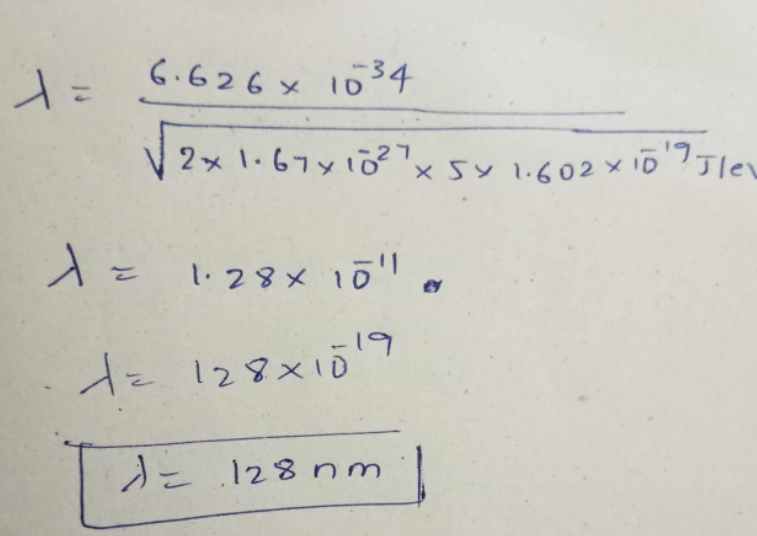 λ = 6.626 × 10⁻³⁴
√2 × 1.67 × 10⁻²⁷ × 5 × 1.602 × 10⁻¹⁹ J/ev
λ = 1.28 × 10⁻¹¹
λ = 128 × 10⁻¹⁹
λ = 128 nm